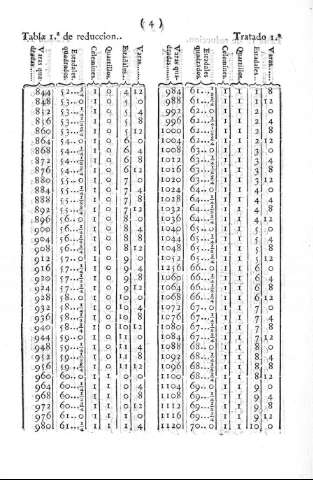 ( 4 )
Tabla 1.ª de reduccion.. Tratado 1.ª
Varas quadradas..... Estadales quadrados. Celemines. Quartillos. Estadales. Varas..... Varas quadradas..... Estadales quadrados. Celemines. Quartillos. Estadales. Varas.....
844 52..¾ 1 0 4 12 984 61..½ 1 1 1 8
848 53..0 1 0 5 0 988 61..¾ 1 1 1 12
852 53..¼ 1 0 5 4 992 62..0 1 1 2 0
856 53..½ 1 0 5 8 996 62..¼ 1 1 2 4
860 53..¾ 1 0 5 12 1000 62..½ 1 1 2 8
864 54..0 1 0 6 0 1004 62..¾ 1 1 2 12
868 54..¼ 1 0 6 4 1008 63..0 1 1 3 0
872 54..½ 1 0 6 8 1012 63..¼ 1 1 3 4
876 54..¾ 1 0 6 12 1016 63..½ 1 1 3 8
880 55..0 1 0 7 0 1020 63..¾ 1 1 3 12
884 55..¼ 1 0 7 4 1024 64..0 1 1 4 0
888 55..½ 1 0 7 8 1028 64..¼ 1 1 4 4
892 55..¾ 1 0 7 12 1032 64..½ 1 1 4 8
896 56..0 1 0 8 0 1036 64..¾ 1 1 4 12
900 56..¼ 1 0 8 4 1040 65..0 1 1 5 0
904 56..½ 1 0 8 8 1044 65..¼ 1 1 5 4
908 56..¾ 1 0 8 12 1048 65..½ 1 1 5 8
912 57..0 1 0 9 0 1052 65..¾ 1 1 5 12
916 57..¼ 1 0 9 4 1256 66..0 1 1 6 0
920 57..½ 1 0 9 8 1060 66..¼ 1 1 6 4
924 57..¾ 1 0 9 12 1064 66..½ 1 1 6 8
928 58..0 1 0 10 0 1068 66..¾ 1 1 6 12
932 58..¼ 1 0 10 4 1072 67..0 1 1 7 0
936 58..½ 1 0 10 8 1076 67..¼ 1 1 7 4
940 58..¾ 1 0 10 12 1080 67..½ 1 1 7 8
944 59..0 1 0 11 0 1084 67..¾ 1 1 7 12
948 59..¼ 1 0 11 4 1088 68..0 1 1 8 0
952 59..½ 1 0 11 8 1092 68..¼ 1 1 8 4
956 59..¾ 1 0 11 12 1096 68..½ 1 1 8 8
960 60..0 1 1 0 0 1100 68..¾ 1 1 8 12
964 60..¼ 1 1 0 4 1104 69..0 1 1 9 0
968 60..½ 1 1 0 8 1108 69..¼ 1 1 9 4
972 60..¾ 1 1 0 12 1112 69..½ 1 1 9 8
976 61..0 1 1 1 0 1116 69..¾ 1 1 9 12
980 61..¼ 1 1 1 4 1120 70..0 1 1 10 0